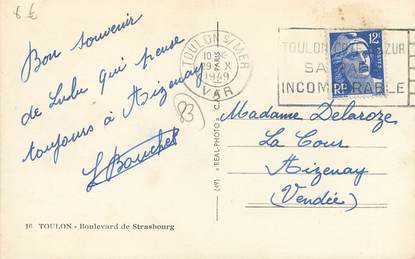 6 €
Bon souvenir
de Lulu qui pense
toujours à Aizenay
L Bouchet
83
TOULON S/MER
10 H
29 - X
1949
VAR
TOULON
AZUR
SA
INCOMPARABLE
12F
RF
REAL-PHOTO
(49)
Madame Delaroze
La Cour
Aizenay
(Vendée)
16 TOULON - Boulevard de Strasbourg